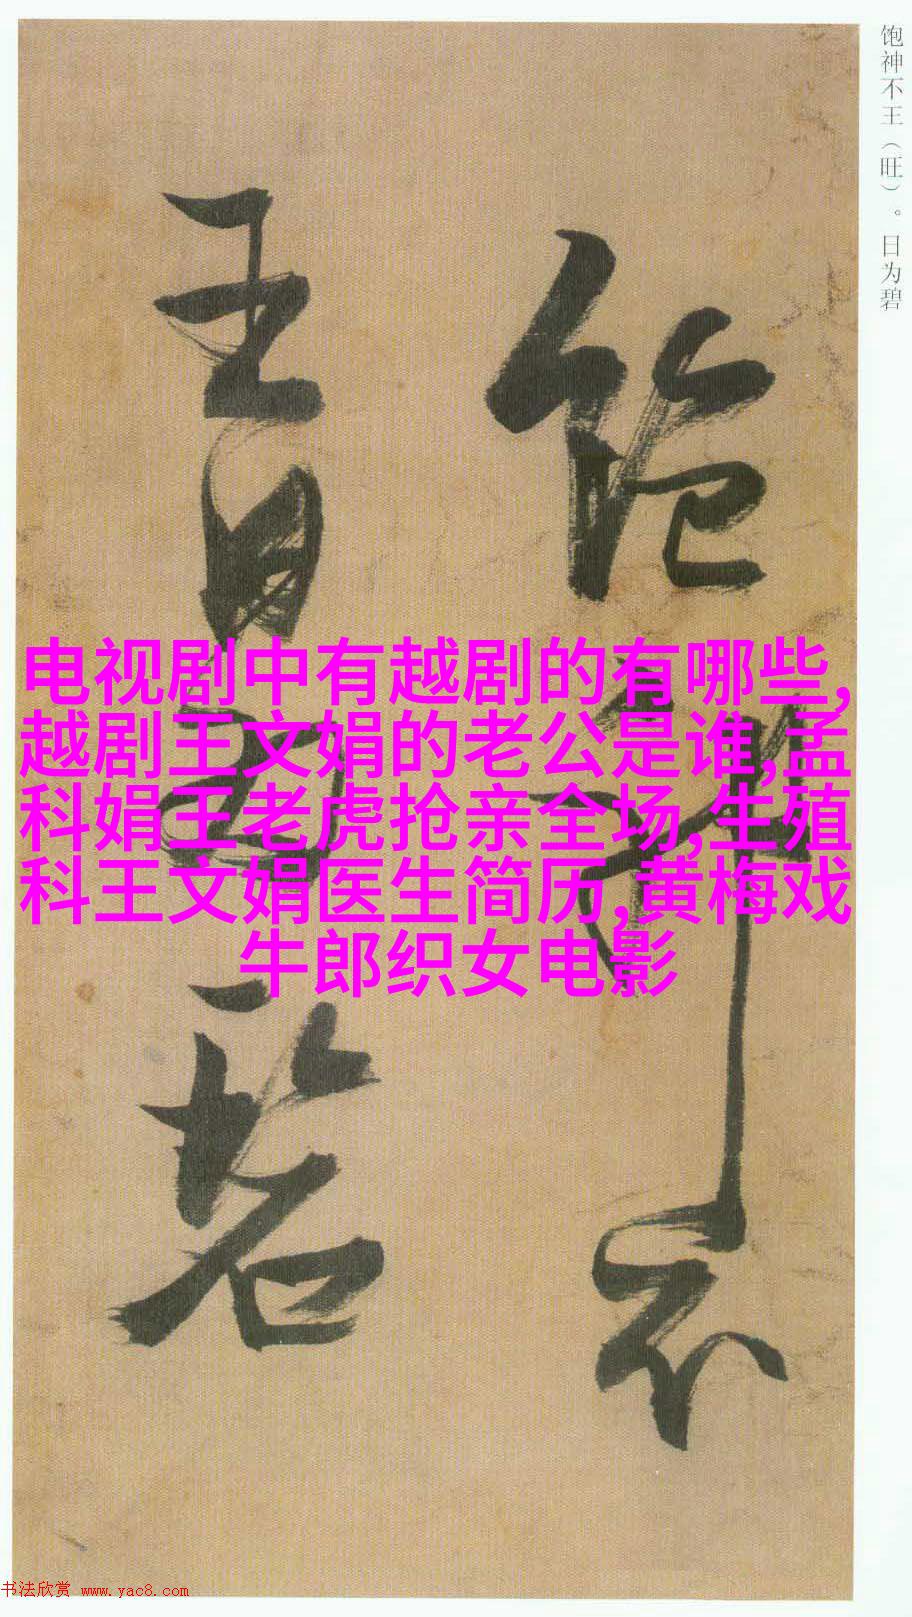 饱神不王（旺）。日为碧
饱神不
王日为碧
电视剧中有越剧的有哪些,
越剧王文娟的老公是谁,孟
科娟王老虎抢亲全场,生殖
科王文娟医生简历,黄梅戏
牛郎织女电影
书法欣赏 www.yac8.com